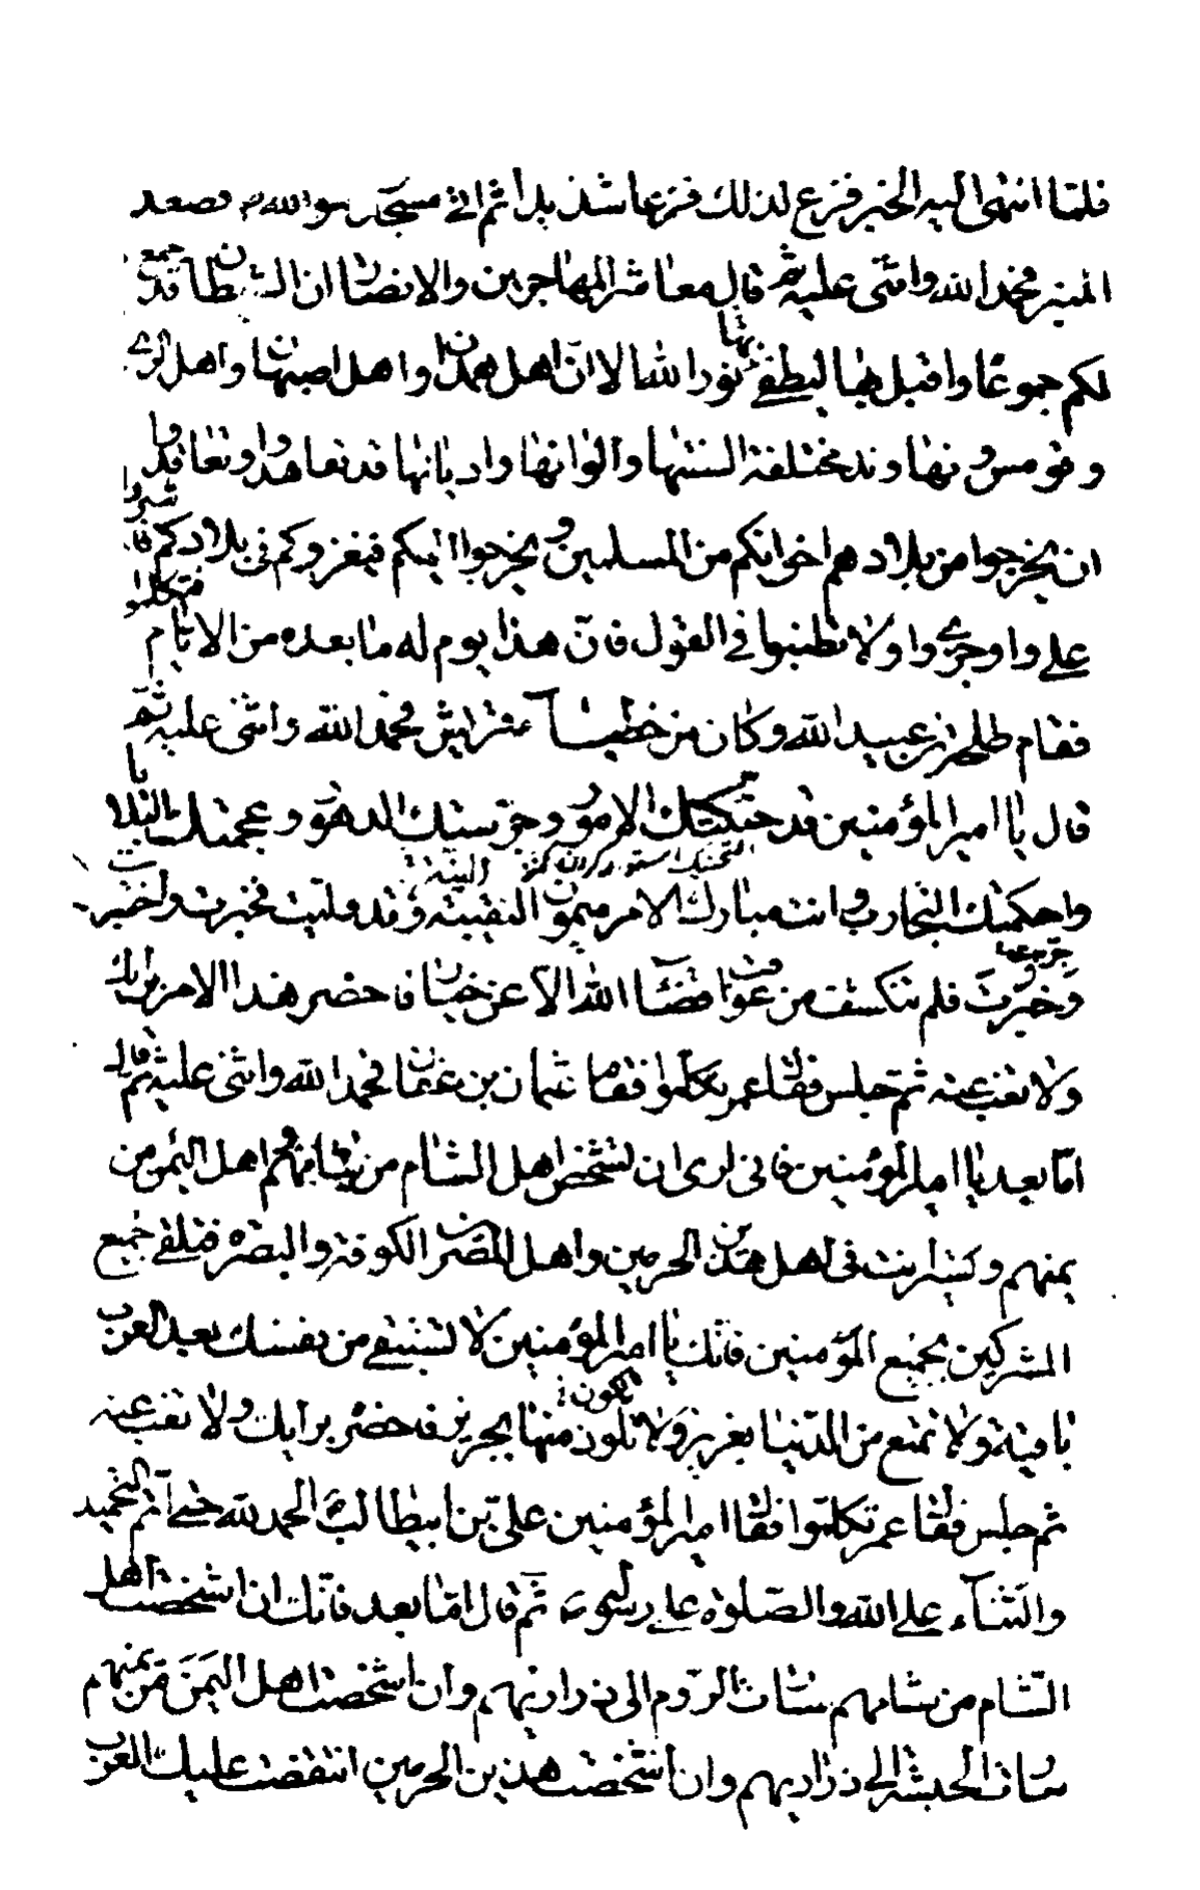 فلمّا انتهى اليه الخبر فزع لذلك فزعا شديدا ثم اتى مسجد رسول الله ص فصعد
المنبر فحمد الله واثنى عليه ثم قال معاشر المهاجرين والانصار ان الشيطان قد جمع
لكم جموعًا واقبل بها ليطفئ بها نور الله الا انّ اهل همدان واهل اصبهان واهل الرى
وقومس ونهاوند مختلفة السنتها والوانها واديانها قد تعاهدوا وتعاقدوا
ان يخرجوا من بلادهم اخوانكم من المسلمين ويخرجوا اليكم فيغزوكم فى بلادكم فاشيروا
علىّ واوجزوا ولا تطنبوا فى القول فانّ هذا يوم له ما بعده من الايّام فتكلموا
فقام طلحة بن عبيد الله وكان من خطبآء قريش فحمد الله واثنى عليه ثم
قال يا امير المؤمنين قد حنكتك الامور وجرستك الدهور وعجمتك البلايا
التحنيك استوار كردانيدن النفيسة
واحكمتك التجارب وانت مبارك الامر ميمون النقيبة وقد وليت فخبرت واختبرت
وخبّرت فلم تنكشف من عواقب قضاء الله الّا عن خيار فاحضر هذا الامر برايك
ولا تغب عنه ثم جلس فقال عمر تكلّموا فقام عثمان بن عفان فحمد الله واثنى عليه ثم قال
امّا بعد يا امير المؤمنين فانى ارى ان تشخص اهل الشام من شامهم واهل اليمن من
يمنهم وتسير انت فى اهل هذين الحرمين واهل المصرين الكوفة والبصره فتلقى جميع
المشركين بجميع المؤمنين فانّك يا امير المؤمنين لا تستبقى من نفسك بعد العرب
باقية ولا تمتع من الدّنيا بعزيز ولا تكون منها بحريز فاحضر برايك ولا تغب عنه
تكون
ثم جلس فقال عمر تكلّموا فقال امير المؤمنين علىّ بن ابيطالب الحمد لله حتى اتم التحميد
والثنآء على الله والصّلوة على رسوله ثم قال امّا بعد فانّك ان اشخصت اهل
الشام من شامهم سارت الروم الى ذراريهم وان اشخصت اهل اليمن من يمنهم
سارت الحبشة الى ذراريهم وان اشخصت هذين الحرمين انتقضت عليك العرب